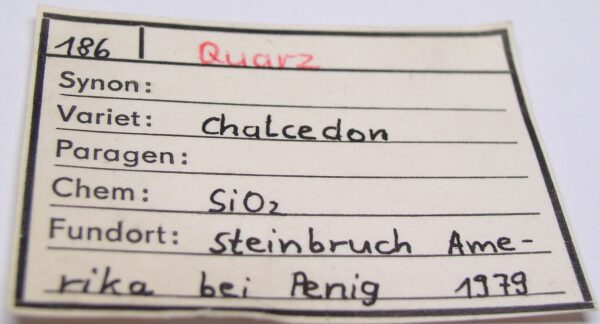 186 Quarz
Synon:
Variet: Chalcedon
Paragen:
Chem: SiO₂
Fundort: Steinbruch Ame-
rika bei Penig 1979